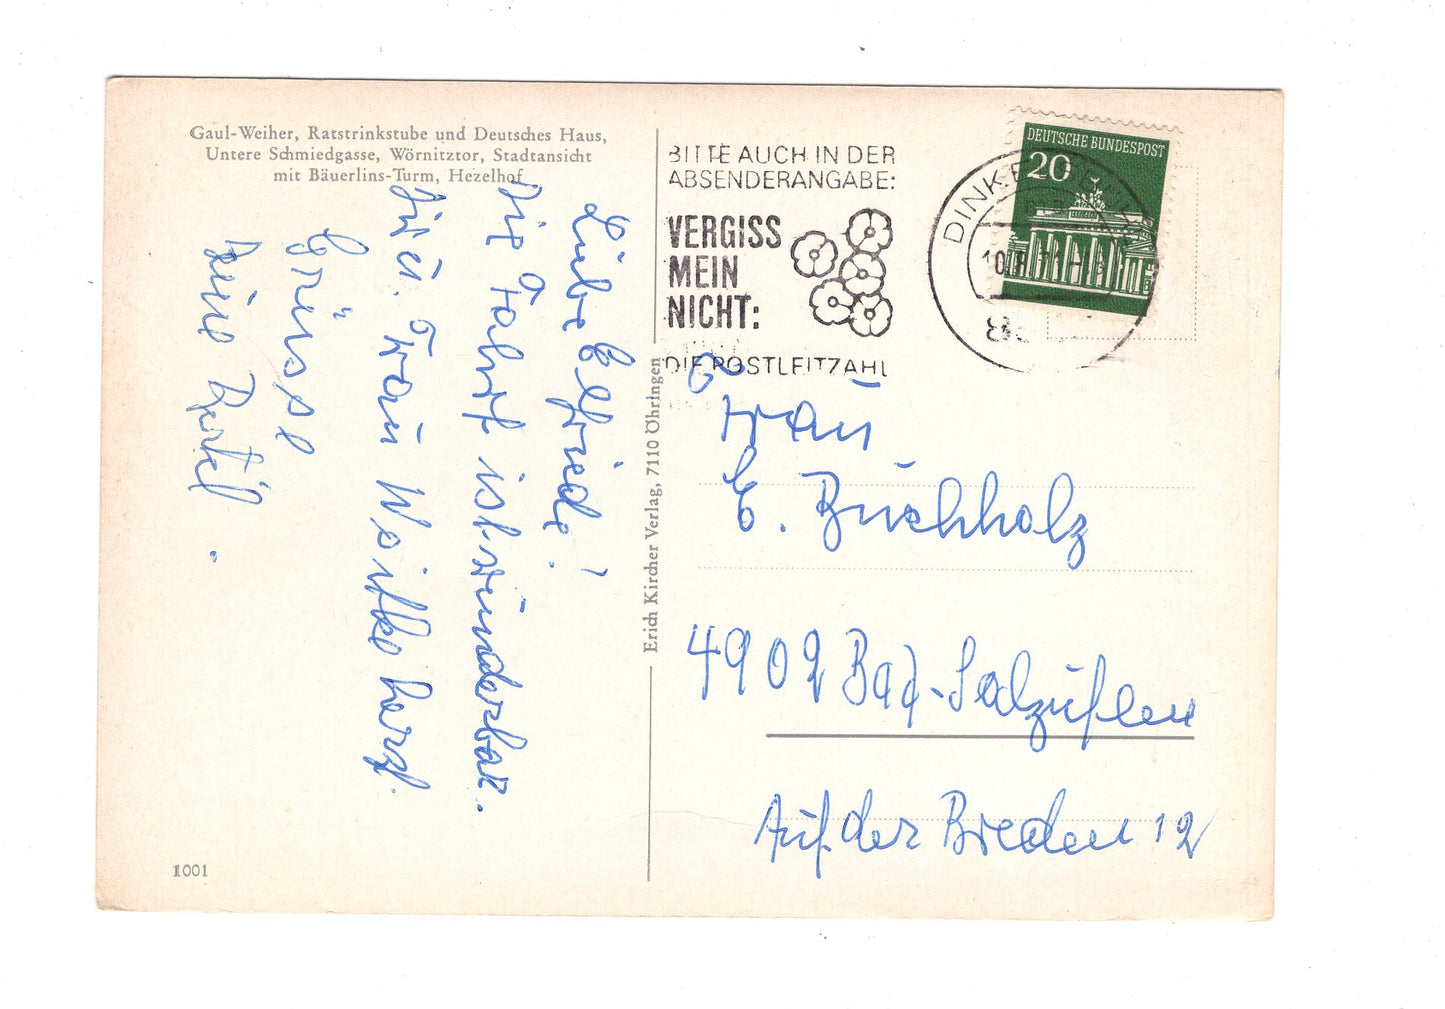 Gaul-Weiher, Ratstrinkstube und Deutsches Haus,
Untere Schmiedgasse, Wörnitztor, Stadtansicht
mit Bäuerlins-Turm, Hezelhof
Liebe Elfriede!
Die Fahrt ist wunderbar.
Frau herzl.
Grüsse
Deine Bertel.
1001
Erich Kircher Verlag, 7110 Öhringen
BITTE AUCH IN DER
ABSENDERANGABE:
VERGISS
MEIN
NICHT:
DIE POSTLEITZAHL
DEUTSCHE BUNDESPOST
20
Frau
E. Buchholz
4902 Bad-Salzuflen
Auf der Breden 12